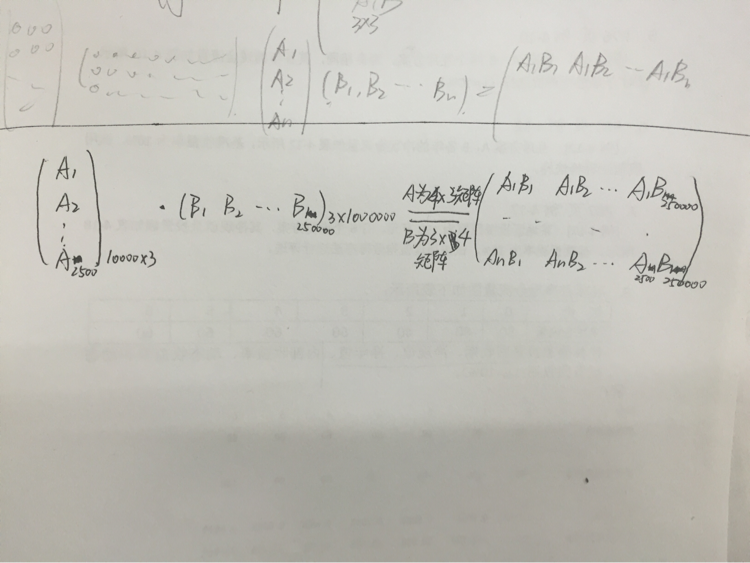 3×3
(A₁ A₂ ⋮ Aₙ) (B₁, B₂ ⋯ Bₙ) = (A₁B₁ A₁B₂ ⋯ A₁Bₙ
(A₁ A₂ ⋮ A₂₅₀₀)10000×3 · (B₁ B₂ ⋯ B₂₅₀₀₀₀)3×1000000 A为4×3矩阵 B为3×4矩阵 = (A₁B₁ A₁B₂ ⋯ A₁B₂₅₀₀₀₀
AₙB₁ AₙB₂ ⋯ A₂₅₀₀B₂₅₀₀₀₀)